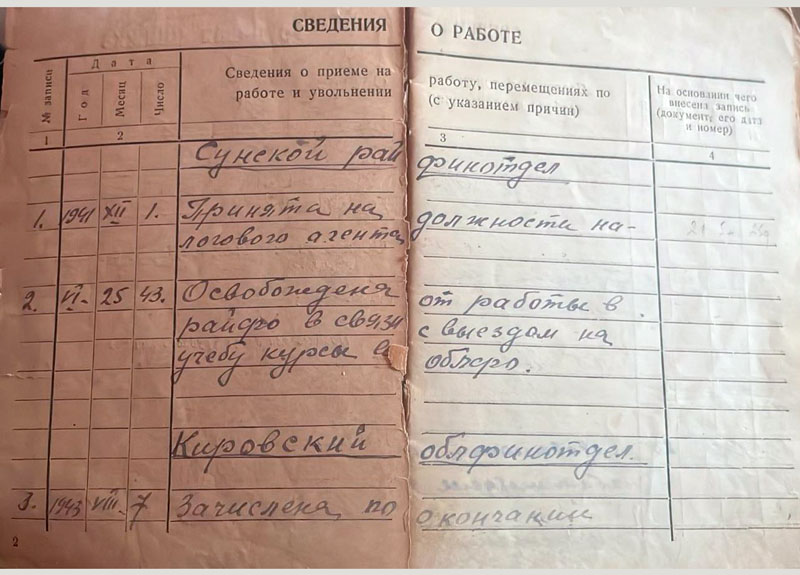 СВЕДЕНИЯ О РАБОТЕ
№ записи
Дата
Год
Месяц
Число
Сведения о приеме на работу, перемещениях по
работе и увольнении (с указанием причин)
На основании чего
внесена запись
(документ, его дата
и номер)
1 2 3 4
Сунской рай финотдел
1. 1941 XII 1. Принята на должности на-
логового агента
2. VI- 25 43. Освобождена от работы в
райфо в связи с выездам на
учебу курсы в облфо.
Кировский облфинотдел.
3. 1943 VIII- 7 Зачислена по окончании
2